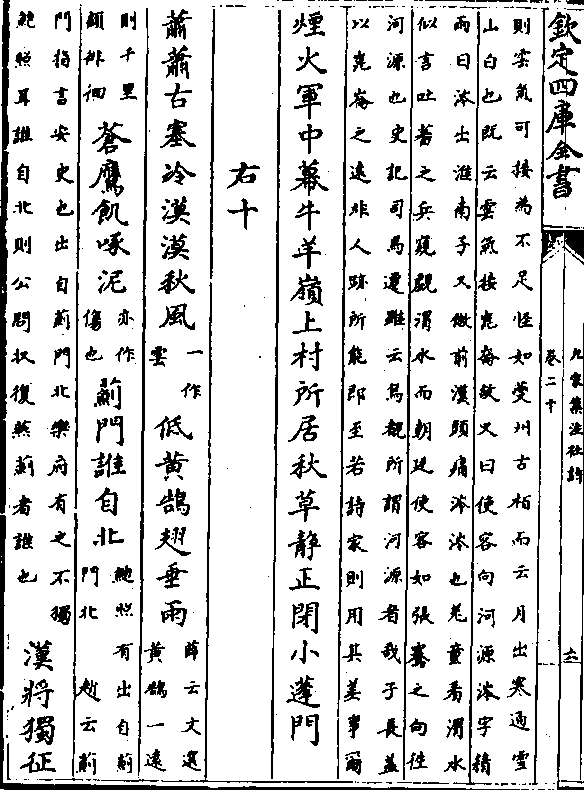 欽定四庫全書
九家集注杜詩
卷二十
則雲氣可接為不足怪如夔州古栢而云月出寒通雪
山白也既云雲氣接崑崙故又曰使客向河源涔字精
雨曰涔出淮南子又倣前漢頭痛涔涔也羌童看渭水
似言吐蕃之兵窺覰渭水而朝廷使客如張騫之向徃
河源也史記司馬遷雖云烏覩所謂河源者哉子長蓋
以崑崙之遠非人跡所能即至若詩家則用其差事爾
煙火軍中幕牛羊嶺上村所居秋草静正閉小蓬門
右十
蕭蕭古塞冷漠漠秋風一作雲低黄鵠翅垂雨薛云文選黄鵠一遠
則千里顧徘徊蒼鷹飢啄泥亦作傷也薊門誰自北鮑照有出自薊門北趙云薊
門指言安史也出自薊門北樂府有之不獨鮑照耳誰自北則公問收復燕薊者誰也漢將獨征